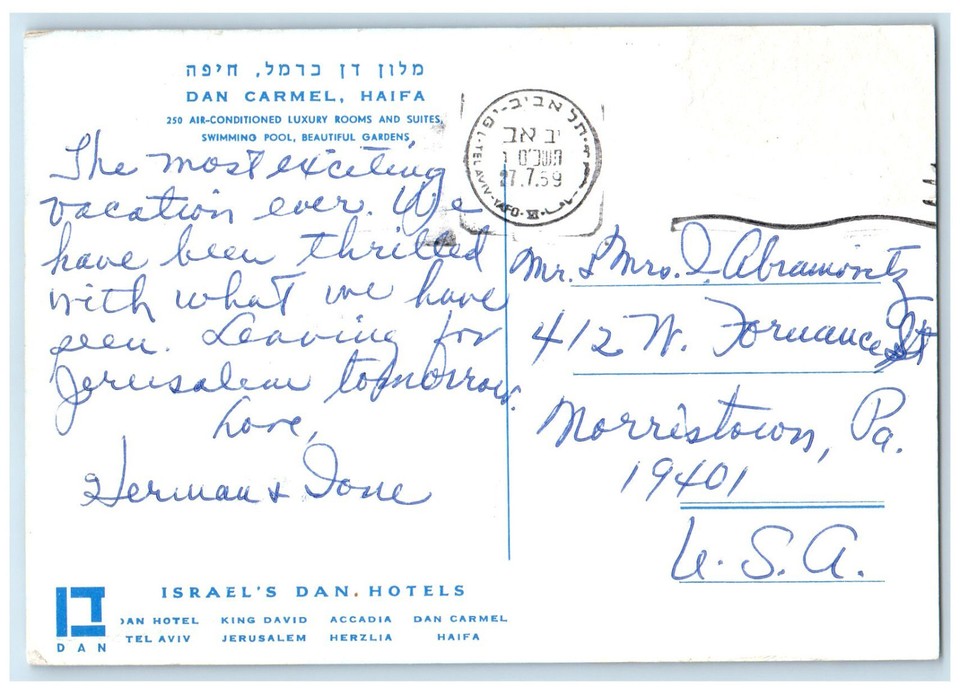 מלון דן כרמל, חיפה
DAN CARMEL, HAIFA
250 AIR-CONDITIONED LUXURY ROOMS AND SUITES,
SWIMMING POOL, BEAUTIFUL GARDENS
תל אביב-יפו
יב אב
27.7.59
TEL AVIV-YAFO · XI
The most exciting
vacation ever. We
have been thrilled
with what we have
seen. Leaving for
Jerusalem tomorrow.
Love,
Herman & Ione
Mr. & Mrs. I. Abramovitz
412 W. Fornance St
Norristown, Pa.
19401
U.S.A.
ISRAEL'S DAN. HOTELS
דן
DAN
DAN HOTEL KING DAVID ACCADIA DAN CARMEL
TEL AVIV JERUSALEM HERZLIA HAIFA